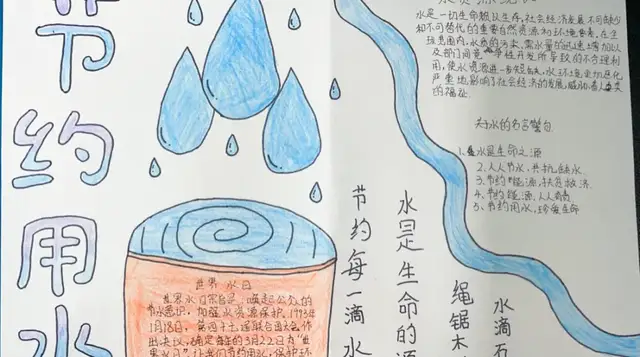 节约用水
水是一切生命赖以生存,社会经济发展不可缺少
和不可替代的重要自然资源和环境要素,在全
球范围内,水质的污染,需水量的迅速增加以
及部门间竞争性开发所导致的不合理利
用,使水资源进一步短缺,水环境
严重地影响了社会经济的发展,威胁着人类
的福祉.
关于水的名言警句
1.水是生命之源
2.人人节水,共抗缺水.
3.节约能源,扶危救济.
4.节约能源,人人有责
5.节约用水,珍爱生命
节约每一滴水
水是生命的源
绳锯木
水滴石
世界水日
世界水日宗旨是唤起公众的
节水意识,加强水资源保护.1993年
1月18日,第四十七届联合国大会作
出决议,确定每年的3月22日为"世
界水日".让我们节约用水,保护环